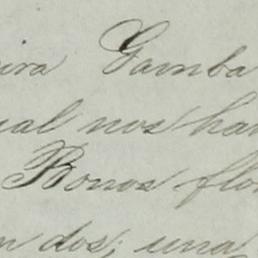 ira Gamba
ual nos han
Bonos flo
n dos; una